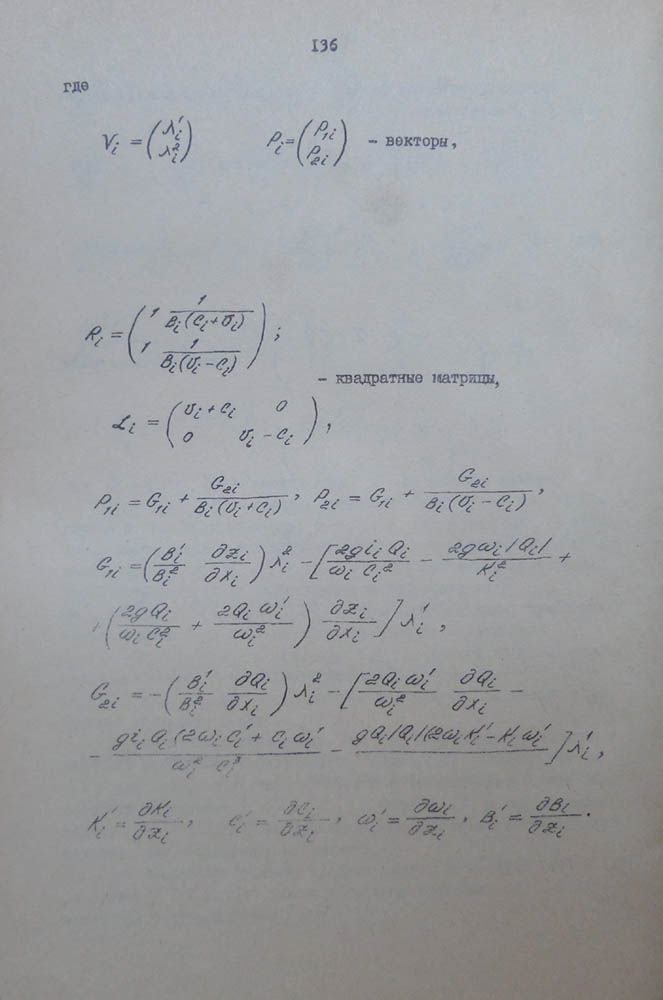 136
где
V_i = (λ_i^1 / λ_i^2)    P_i = (P_1i / P_2i) – векторы,
R_i = ( 1  1/(B_i(C_i+υ_i)) ; 1  1/(B_i(υ_i–C_i)) ) ;
– квадратные матрицы,
L_i = ( υ_i+C_i  0 ; 0  υ_i–C_i ) ,
P_1i = G_1i + G_2i/(B_i(υ_i+C_i)) , P_2i = G_1i + G_2i/(B_i(υ_i–C_i)) ,
G_1i = (B_i'/B_i^2 ∂z_i/∂x_i) λ_i^2 – [2g i_i Q_i/(ω_i C_i^2) – 2gω_i|Q_i|/K_i^2 +
+ (2gQ_i/(ω_i C_i^2) + 2Q_i ω_i'/ω_i^2) ∂z_i/∂x_i] λ_i^1 ,
G_2i = –(B_i'/B_i^2 ∂Q_i/∂x_i) λ_i^2 – [2Q_i ω_i'/ω_i^2 ∂Q_i/∂x_i –
– g i_i Q_i (2ω_i C_i' + C_i ω_i'/(ω_i^2 C_i^3) – gQ_i|Q_i|(2ω_i K_i' – K_i ω_i'] λ_i^1 ,
K_i' = ∂K_i/∂z_i , C_i' = ∂C_i/∂z_i , ω_i' = ∂ω_i/∂z_i , B_i' = ∂B_i/∂z_i .